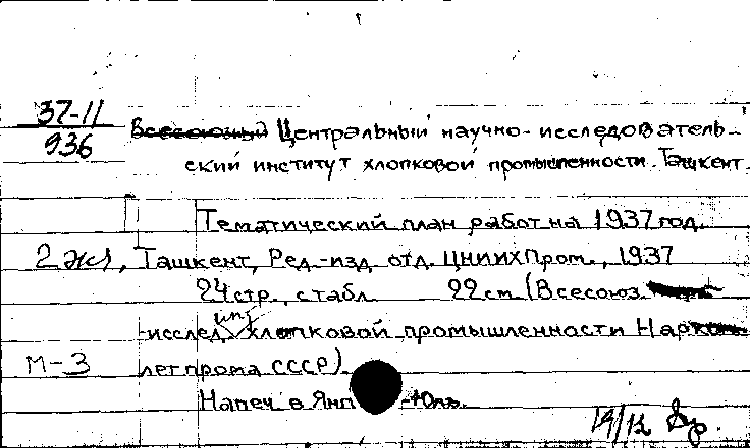 37-11
936
Всесоюзный Центральный научно-исследователь-
ский институт хлопковой промышленности. Ташкент.
Тематический план работ на 1937 год.
2 экз, Ташкент, Ред.-изд. отд. ЦНИИХПром., 1937
24 стр., с табл. 22 см (Всесоюз.
инт
исслед. хлопковой промышленности Нарком
М-3 легпрома СССР)
Напеч. в Янги-Юль.
19/12